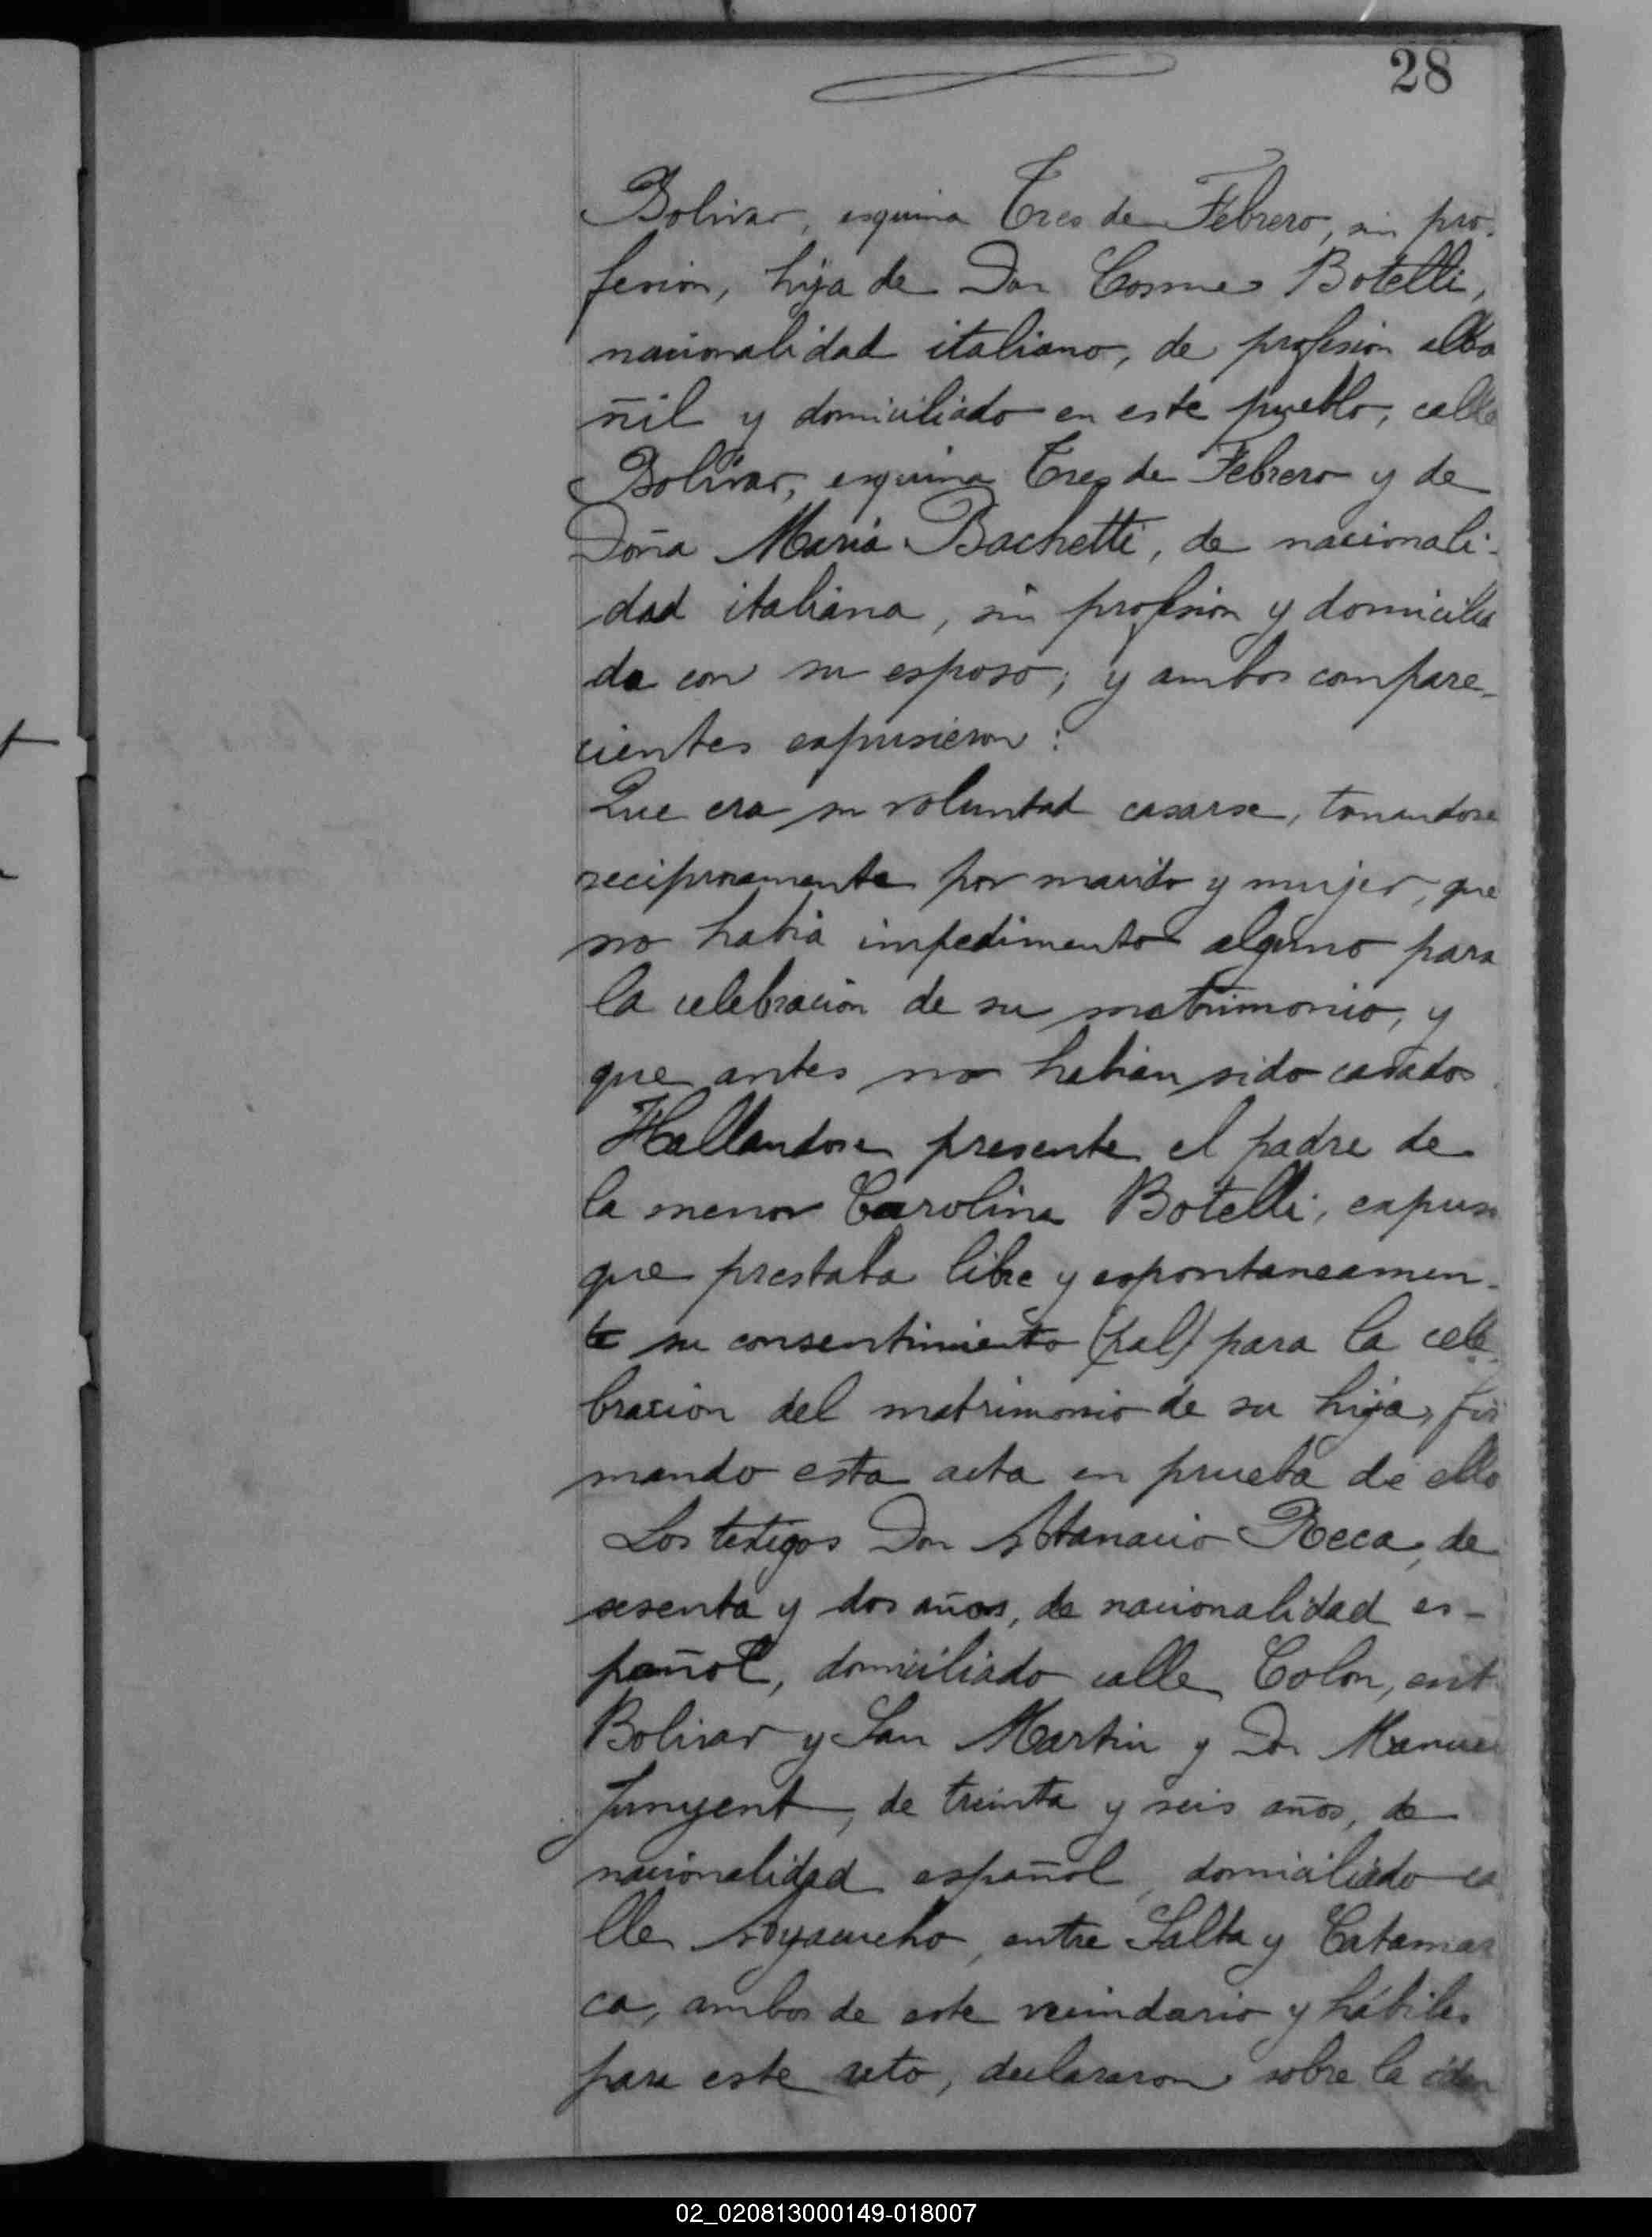 28
Bolivar, esquina Tres de Febrero, sin pro-
fesion, hija de Don Cosme Botelli,
nacionalidad italiano, de profesion alba
ñil y domiciliado en este pueblo, calle
Bolivar, esquina Tres de Febrero y de
Doña Maria Bachetti, de nacionali-
dad italiana, sin profesion y domicilia
da con su esposo; y ambos compare-
cientes expusieron:
Que era su voluntad casarse, tomandose
reciprocamente por marido y mujer, que
no habia impedimento alguno para
la celebracion de su matrimonio, y
que antes no habian sido casados
Hallandose presente el padre de
la menor Carolina Botelli, expuso
que prestaba libre y espontaneamen-
te su consentimiento (pal) para la cele
bracion del matrimonio de su hija, fir
mando esta acta en prueba de ello
Los testigos Don Atanacio Reca, de
sesenta y dos años, de nacionalidad es-
pañol, domiciliado calle Colon, ent
Bolivar y San Martin y Don Manuel
Junyent, de treinta y seis años, de
nacionalidad español, domiciliado ca
lle Ayacucho, entre Salta y Catamar
ca, ambos de este vecindario y hábiles
para este acto, declararon sobre la iden
02_020813000149-018007